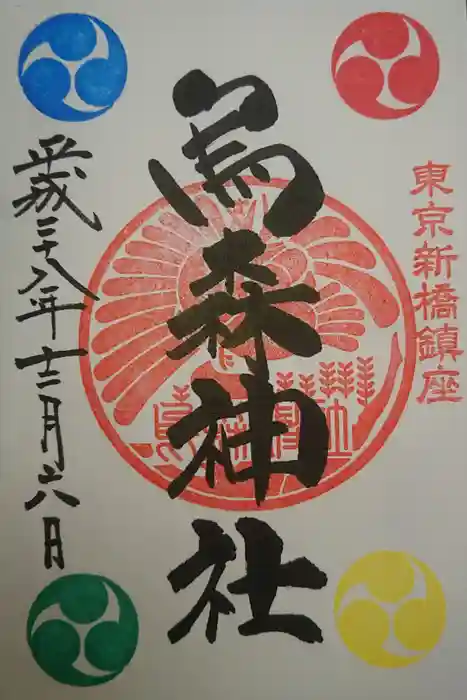 東京新橋鎮座
烏森神社
平成二十八年十二月六日